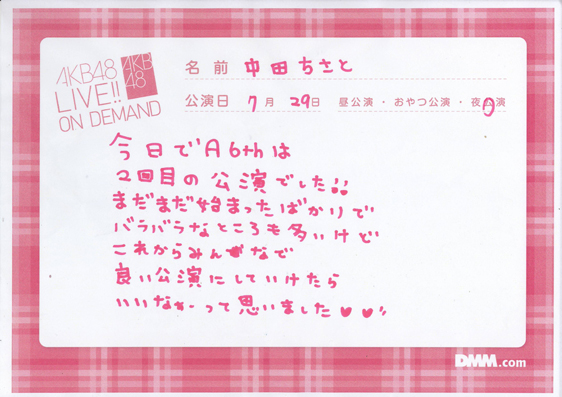 AKB48
LIVE!!
ON DEMAND
AKB
48
名前 中田ちさと
公演日 7月29日 昼公演・おやつ公演・夜公演
今日でA6thは
2回目の公演でした!!
まだまだ始まったばかりで
バラバラなところも多いけど
これからみんなで
良い公演にしていけたら
いいなぁーって思いました♥♥"
DMM.com